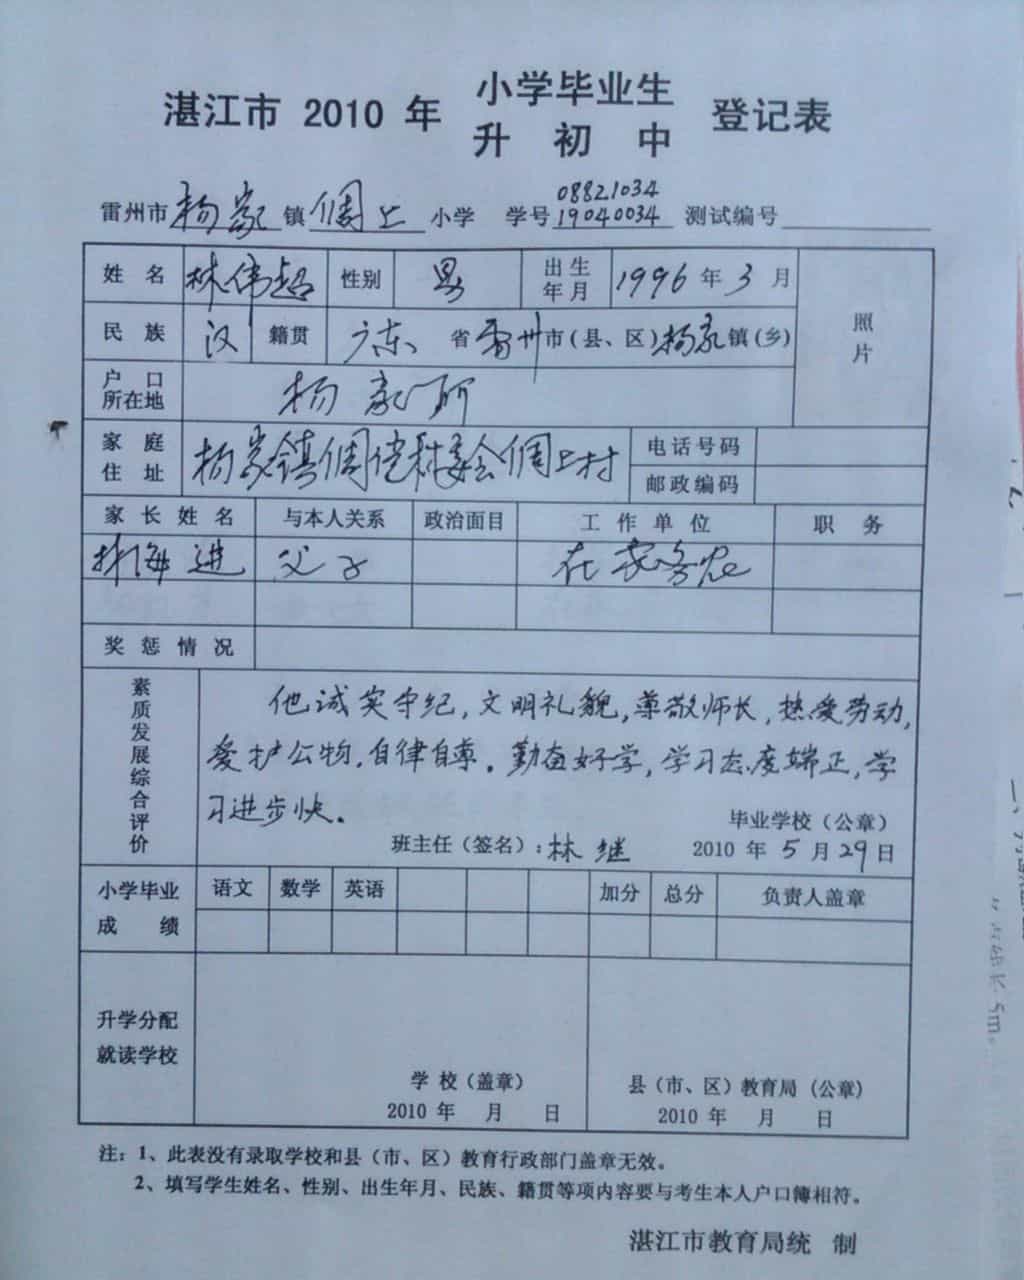 湛江市 2010 年 小学毕业生 升初中 登记表
08821034
雷州市 杨家 镇 倜上 小学 学号 19040034 测试编号
姓名 林伟超 性别 男 出生年月 1996 年 3 月 照片
民族 汉 籍贯 广东 省 雷州 市(县、区) 杨家 镇(乡)
户口所在地 杨家所
家庭住址 杨家镇倜 村委会倜上村 电话号码
邮政编码
家长姓名 与本人关系 政治面目 工作单位 职务
林海进 父子 在家务农
奖惩情况
素质发展综合评价
他诚实守纪,文明礼貌,尊敬师长,热爱劳动,
爱护公物,自律自尊。勤奋好学,学习态度端正,学
习进步快。
毕业学校(公章)
班主任(签名):林继 2010 年 5 月 29 日
小学毕业成绩 语文 数学 英语 加分 总分 负责人盖章
升学分配
就读学校
学校(盖章) 县(市、区)教育局(公章)
2010 年 月 日 2010 年 月 日
注:1、此表没有录取学校和县(市、区)教育行政部门盖章无效。
2、填写学生姓名、性别、出生年月、民族、籍贯等项内容要与考生本人户口簿相符。
湛江市教育局统 制